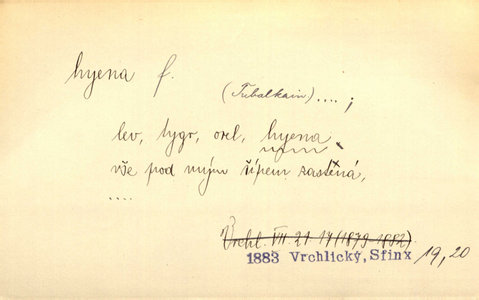 hyena f.
(Tubalkain)....;
lev, tygr, orel, hyena
vše pod mým šípem zasténá,
....
Vrchl. VII. 21 17 (1879-1882)
1883 Vrchlický, Sfinx 19, 20